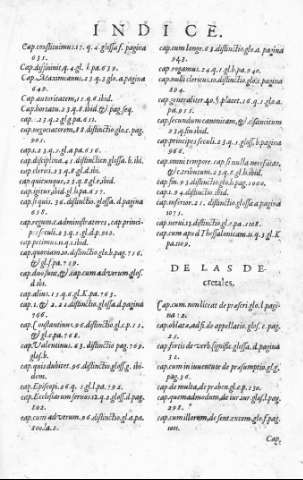 INDICE.
Cap. constituimus. 17. q. 4. glossa f. pagina
631.
Cap. definivit. q. 4. gl. l. pa. 639.
Cap. Maximianus. 23. q. 3. glo. a. pagina
640.
Cap. autoritatem, 15. q. 6. ibid.
Cap. hortatu. 23. q. 8. ibid.
cap. . 23. q. 2 gl g pa. 611.
cap. negociatorem, 88. distinctio. glo c. pag.
cap. 1. 23. q. 1. glo, a. pa. 636.
cap. disciplina. 45. distinctio. glossa. b. ibi.
cap. clerici. 23. q. 8. gl. d. ibi.
cap. quicunque, 23. q. 8. glo e, ibid.
cap. igitur, ibid. gl. h. pa. 657.
cap. si quis. 36. distinctio. glossa. d. pagina
658.
cap. regum. c. administratores, cap. princi-
cap. petimus. 11. q. 1. ibid.
cap. quoniam. 10. distinctio. glo h. pag. 756.
cap. duo sunt, & cap. cum ad verum, glos.
d. ibi.
cap. alius. 15. q. 6. gl. K. pa. 763.
distinctio. glossa. d. pagina
766.
cap. Constantinus. 96. distinctio.
cap. Valentinus. 63. distinctio pag. 769.
glos. k.
cap. quis dubitet. 96. distinctio. glos. g. ibi-
dem.
cap. Episcopi. 26. q.
cap. Ecclesiarum servos. 12. q. 2. glos. d. pag.
802.
cap. cum ad verum. 96. distinctio. gl. a. pa.
cap. cum longe. 63. distinctio. glo. a. pagina
943.
cap. rogamus. 24. q. 1. gl. b. pa. 940.
cap. nulli clericus. 10. distinctio. glo. c. pagina
cap. generaliter. 40. § placet. 16. q. 1. glo. a.
pa. 955.
cap. secundum canonicam,
cap. principes seculi. 23. q. 5. gloss. b, pagina
962.
cap. omni tempore. cap. si nulla
cap. fin. 93. distinctio. glo b, pag. 1000.
cap. 1. 94. distinctio. ibid.
cap. inferior. 21. distinctio. glossa a, pagina
1071.
cap. sacris. 13. distinctio. gl. c. pa. 1108.
cap. cum apud Thessalonicam. 11. q. 3. gl. K
pa. 1109.
DE LAS DE-
cretales.
Cap. cum non liceat de præscri. glo. l. pagi-
na 12.
cap. oblatæ, ad fi. de appellatio. glos. c. pag.
25.
cap. fortis de verb. signific. glossa. d. pagina
32.
cap. cum in iuventute de præsumptio. gl. g.
pag. 36.
cap. de multa, de præben. gl. e. p. 130.
cap. quemadmodum, de iur. iur. glos. l. pag.
298.
cap. cum illorum, de sent. excom. glo. f. pag.
Cap.